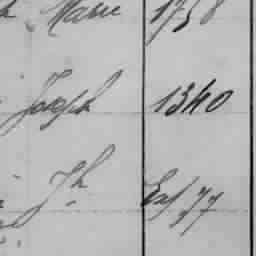 Marie 1758
Joseph 1340
Jh Ex/77